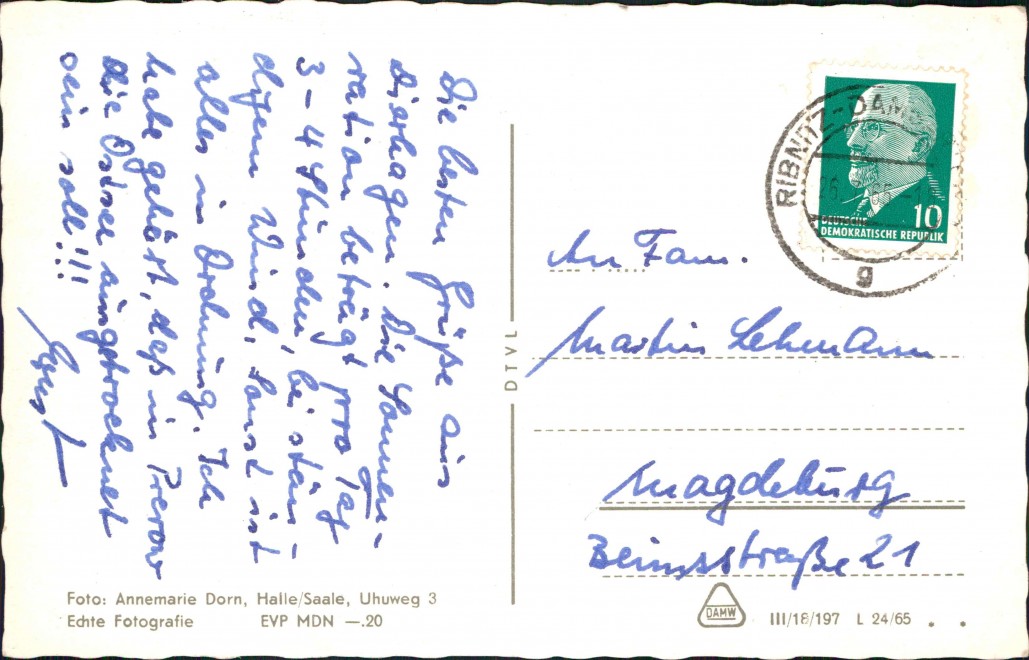 Die besten Grüße aus
Dierhagen. Die Sonnen-
ration beträgt pro Tag
3-4 Stunden, bei stän-
digem Wind, sonst ist
alles in Ordnung. Ich
habe gehört, daß in Prerow
die Ostsee ausgetrocknet
sein soll!!!
DTVL
RIBNITZ-DAM
65
g
10
DEUTSCHE
DEMOKRATISCHE REPUBLIK
An Fam.
Martin Lehmann
Magdeburg
Beimsstraße 21
Foto: Annemarie Dorn, Halle/Saale, Uhuweg 3
Echte Fotografie EVP MDN —.20
DAMW
III/18/197 L 24/65